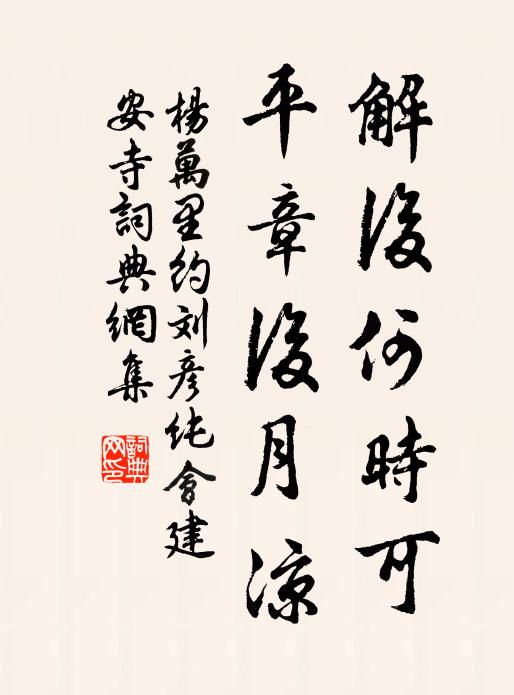 解後何時可
平章後月涼
楊萬里約刘彦純會建
安寺詞典網集
詞典
网印